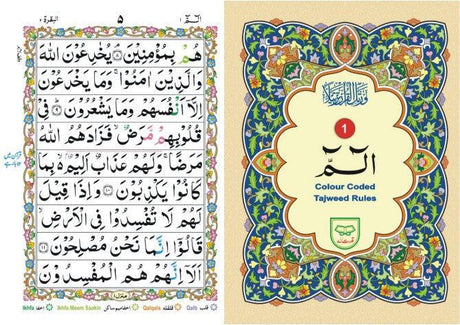 البقرة ٢
٥
الٓمّٓ ١
هُمْ بِمُؤْمِنِيْنَ ﴿٨﴾ يُخٰدِعُوْنَ اللّٰهَ
وَالَّذِيْنَ اٰمَنُوْا ۚ وَمَا يَخْدَعُوْنَ
اِلَّآ اَنْفُسَهُمْ وَمَا يَشْعُرُوْنَ ﴿٩﴾ فِيْ
قُلُوْبِهِمْ مَّرَضٌ ۙ فَزَادَهُمُ اللّٰهُ
مَرَضًا ۚ وَلَهُمْ عَذَابٌ اَلِيْمٌۢ ۙ بِمَا
كَانُوْا يَكْذِبُوْنَ ﴿١٠﴾ وَاِذَا قِيْلَ
لَهُمْ لَا تُفْسِدُوْا فِي الْاَرْضِ ۙ
قَالُوْٓا اِنَّمَا نَحْنُ مُصْلِحُوْنَ ﴿١١﴾
اَلَآ اِنَّهُمْ هُمُ الْمُفْسِدُوْنَ
منزل ١
Ikhfa اخفا Ikhfa Meem Saakin اخفا میم ساکن Qalqala قلقلہ Qalb قلب
1
الٓمّٓ
Colour Coded
Tajweed Rules